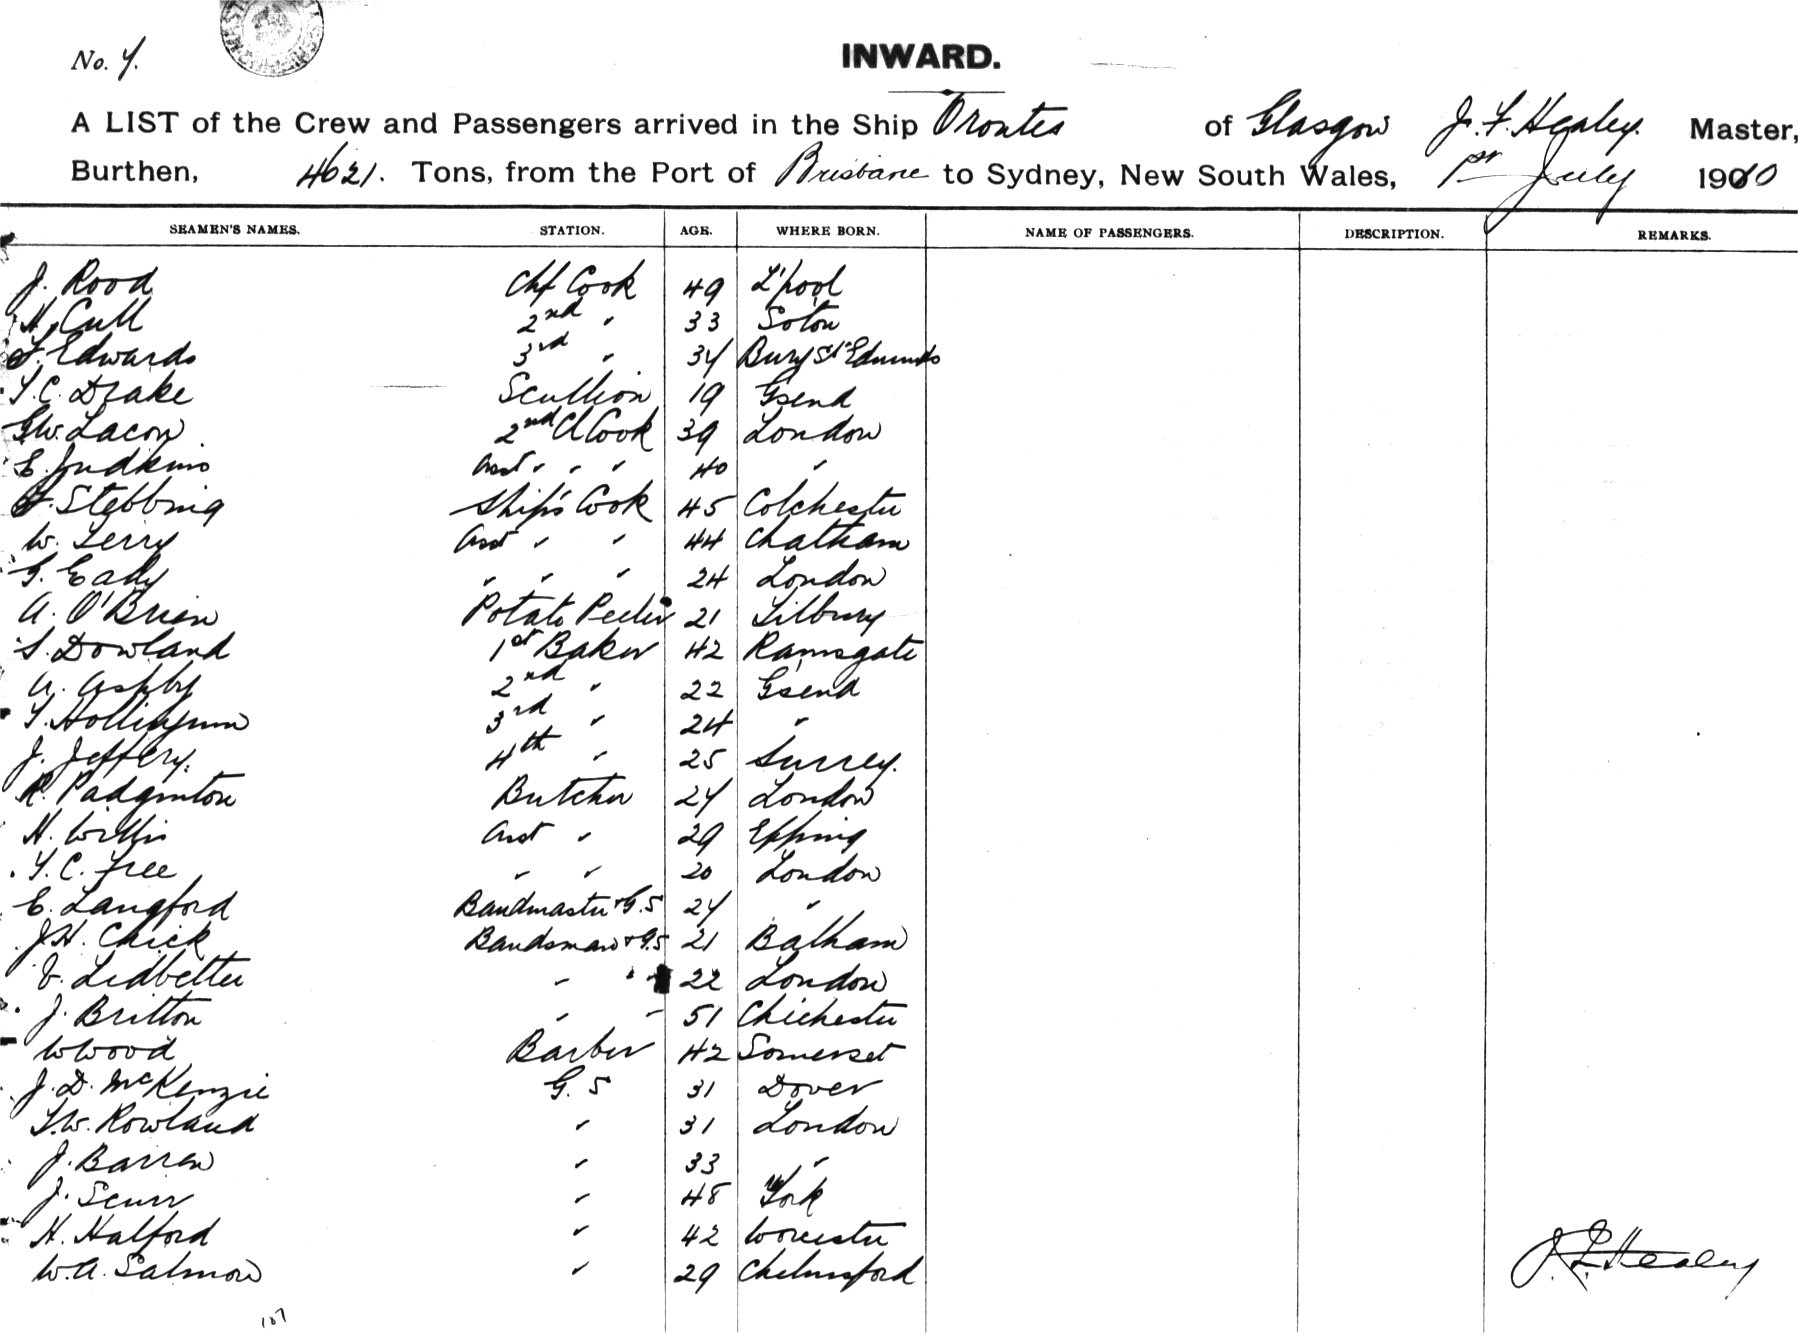 No. 7.
INWARD.
A LIST of the Crew and Passengers arrived in the Ship Orontes of Glasgow J. F. Healey. Master,
Burthen, 4621. Tons, from the Port of Brisbane to Sydney, New South Wales, 1st July 1910
SEAMEN'S NAMES. STATION. AGE. WHERE BORN. NAME OF PASSENGERS. DESCRIPTION. REMARKS.
J. Rood Chf Cook 49 L'pool
H. Cull 2nd " 33 Soton
F. Edwards 3rd " 34 Bury St Edmunds
T. C. Drake Scullion 19 G'send
G.W. Lacon 2nd Cl Cook 39 London
E. Judkins Asst " " " 40 "
F. Stebbing Ship's Cook 45 Colchester
W. Terry Asst " " 44 Chatham
G. Eady " " " 24 London
A. O'Brien Potato Peeler 21 Tilbury
S. Dowland 1st Baker 42 Ramsgate
A. Ashby 2nd " 22 G'send
T. Hollingum 3rd " 24 "
J. Jeffery. 4th " 25 Surrey.
R. Padginton Butcher 24 London
H. Willis Asst " 29 Epping
T. C. Free " " 20 London
E. Langford Bandmaster & G.S 24 "
J.H. Chick Bandsman & G.S 21 Balham
Ledbetter " " " 22 London
J. Britton " " 51 Chichester
W Wood Barber 42 Somerset
J. D. McKenzie G. S 31 Dover
T.W. Rowland " 31 London
J. Barren " 33 "
J. Scurr " 48 York
H. Halford " 42 Worcester
W.A. Salmon " 29 Chelmsford
J. F. Healey
107